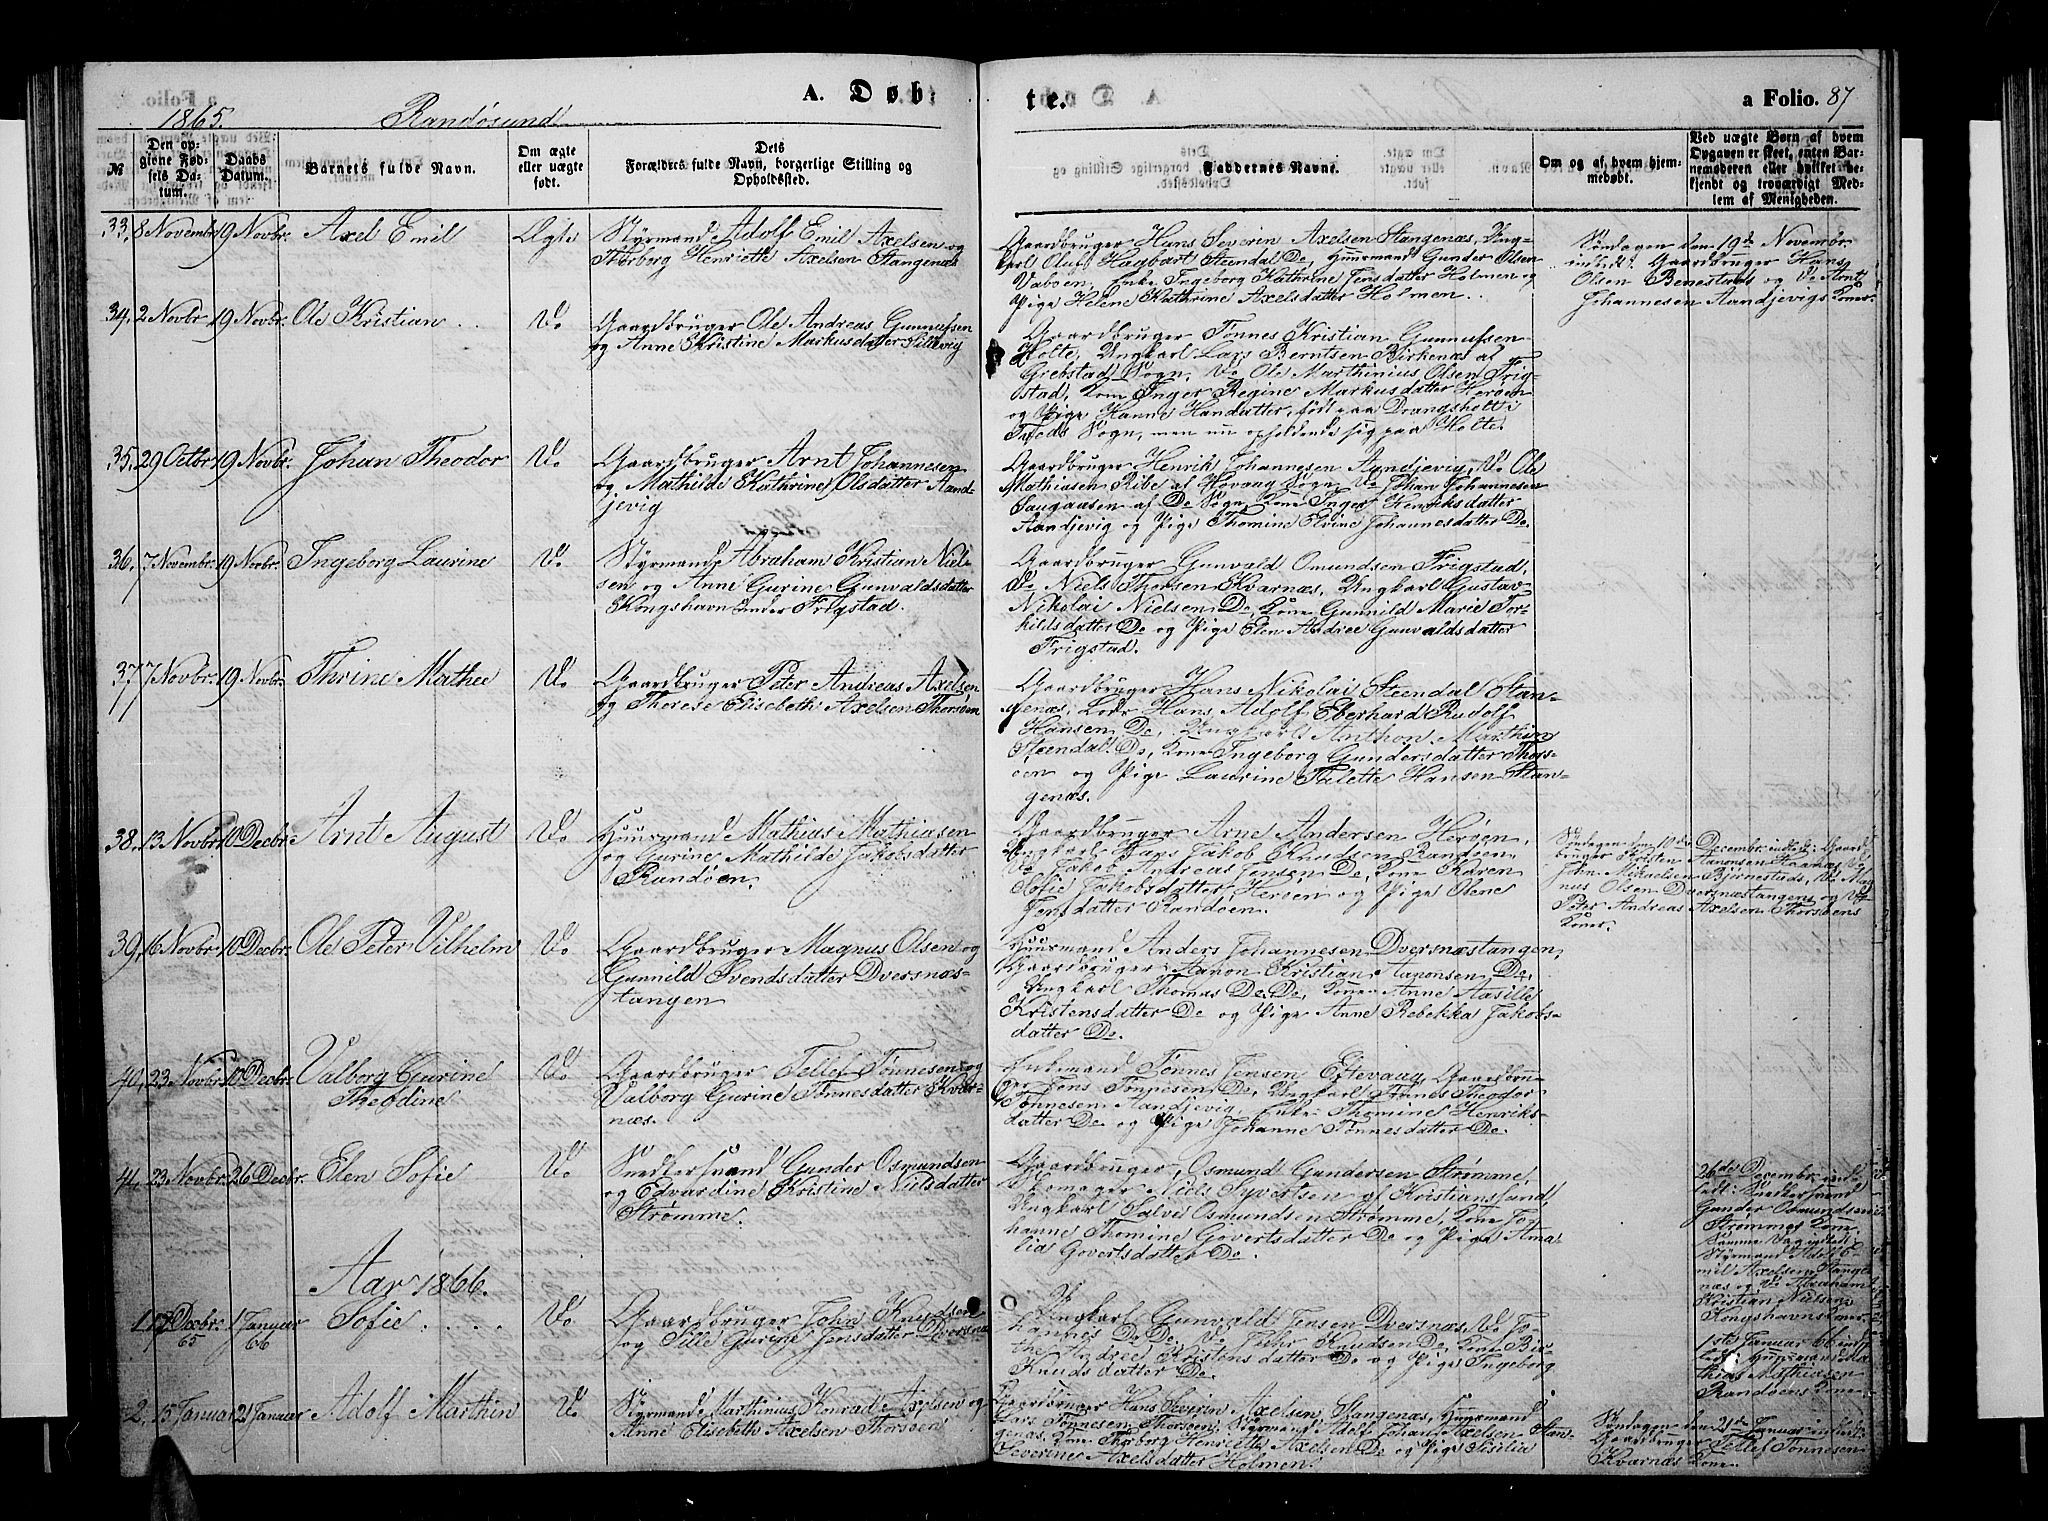 A. Døb-
te.
a Folio. 87
1865. Randøsund
№
Den opgivne Fødsels Datum.
Daabs Datum.
Barnets fulde Navn.
Om ægte eller uægte født.
Dets Forældres fulde Navn, borgerlige Stilling og Opholdssted.
Faddernes Navne.
Om og af hvem hjemmedøbt.
Ved uægte Børn af hvem Opgaven er skeet, enten Barnemoderen eller hvilket bekjendt og troværdigt Medlem af Menigheden.
33, 8 Novembr 19 Novbr. Axel Emil Ægte
Styrmand Adolf Emil Axelsen og
Thorborg Henriette Axelsen Stangenæs
Gaardbruger Hans Severin Axelsen Stangenæs, Ung-
karl Oluf Hagbart Steendal Do, Huurmand Gunder Olsen
Vaboen, Enke Ingeborg Kathrine Jensdatter Holmen og
Pige Helene Kathrine Axelsdatter Holmen.
Søndagen den 19de Novembr
indledt: Gaardbruger Hans
Olsen Benestads og Do Arnt
Johannesen Aandjevigs Koner.
34, 2 Novbr. 19 Novbr. Ole Kristian Do
Gaardbruger Ole Andreas Gunnufsen
og Anne Kristine Markusdatter
Gaardbruger Tønnes Kristian Gunnufsen
Holte, Ungkarl Lars Berntsen Birkenæs af
Sogn, Do Ole Marthinius Olsen Frig-
stad, Kone Inger Regine Markusdatter Herøen
og Pige Hanne Hansdatter, født paa Drangsholt i
Tveds Sogn, men nu opholdende sig paa Holte.
35, 29 Octbr. 19 Novbr. Johan Theodor Do
Gaardbruger Arnt Johannesen
og Mathilde Kathrine Olsdatter Aand-
jevig
Gaardbruger Henrik Johannesen Aandjevig, Do Ole
Mathiasen Ribe af Høvaag Sogn, Do Johan Johannesen
af Do Sogn, Kone Inger Henriksdatter
Aandjevig og Pige Thomine Elvine Johannesdatter Do.
36, 7 Novembr. 19 Novbr. Ingeborg Laurine Do
Styrmand Abraham Kristian Niel-
sen og Anne Gurine Gunvaldsdatter
Kongshavn under Frigstad.
Gaardbruger Gunvald Omundsen Frigstad,
Do Niels Thorsen Kvarnæs, Ungkarl Gustav
Nikolai Nielsen Do, Kone Gunnild Marie Tor-
kildsdatter Do og Pige Elen Andree Gunvaldsdatter
Frigstad.
37, 7 Novbr. 19 Novbr. Thrine Mathee Do
Gaardbruger Peter Andreas Axelsen
og Therese Elisabeth Axelsen Thorsøen
Gaardbruger Hans Nikolai Steendal Stan-
genæs, Lods Hans Adolf Eberhard Rudolf
Hansen Do, Ungkarl Anthon Marthin
Steendal Do, Kone Ingeborg Gundersdatter Thors-
øen og Pige Laurine Hansen Stan-
genæs.
38, 13 Novbr. 10 Decbr. Arnt August Do
Huurmand Mathias Mathiasen
og Gurine Mathilde Jakobsdatter
Randøen.
Gaardbruger Arne Andersen Herøen,
Ungkarl Hans Jakob Knudsen Randøen,
Do Jakob Andreas Jensen Do, Kone Karen
Sofie Jakobsdatter, Herøen og Pige Olene
Jensdatter Randøen.
Søndagen den 10de Decembr indledt: Gaard-
bruger Kristen Aanonsen Do
John Mikaelsen Bjørnestads, Do Mag-
nus Olsen Dversnæstangens og Do
Peter Andreas Axelsen Thorsøens
Koner.
39, 16 Novbr. 10 Decbr. Ole Peter Vilhelm Do
Gaardbruger Magnus Olsen og
Gunnild Svendsdatter Dversnæs-
tangen
Huurmand Anders Johannesen Dversnæstangen,
Gaardbruger Aanon Kristian Aanonsen Do,
Ungkarl Thomas Do, Do, Kone Anne Aasille
Kristensdatter Do og Pige Anne Rebekka Jakobs-
datter Do.
40, 23 Novbr. 10 Decbr. Valborg Gurine
Theodine Do
Gaardbruger Tellef Tønnesen og
Valborg Gurine Tønnesdatter Kvar-
næs.
Enkemand Tønnes Jensen Eftevaag, Gaardbru-
ger Jens Tønnesen Do, Ungkarl Tønnes Theodor
Tønnesen Aandjevig, Enke Thomine Henriks-
datter Do og Pige Johanne Tønnesdatter Do.
41, 23 Novbr. 26 Decbr. Elen Sofie Do
Snedkersvend Gunder Osmundsen
og Edvardine Kristine Nielsdatter
Strømme.
Gaardbruger, Osmund Gundersen Strømme,
Skomager Niels Syvertsen af Kristianssand,
Ungkarl Salve Osmundsen Strømme, Kone Jo-
hanne Thomine Govertsdatter Do og Pige Ama-
lia Govertsdatter Do.
26de Decembr ind-
ledt: Snedkersvend
Gunder Osmundsen
Strømmes Kone
Samme Dag indledt:
Styrmand Adolf E-
mil Axelsen Stange-
næs og Do Abraham
Kristian Nielsen
Kongshavns Koner.
Aar 1866.
1, 17 Decbr. 65 1 Januar 66 Sofie Do
Gaardbruger John Knudsen
og Sille Gurine Jensdatter Dversnæs
Ungkarl Gunvald Jensen Dversnæs, Do Jo-
hannes Do Do, Do Peder Knudsen Do, Kone Bir-
the Andree Kristensdatter Do og Pige Ingeborg
Knudsdatter Do.
1ste Januar 66 ind-
ledt: Huurmand Ma-
thias Mathiasen
Randøens Kone
2, 15 Januar 21 Januar Adolf Marthin Do
Styrmand Marthinius Konrad Axelsen og
Anne Elisabeth Axelsen Thorsøen
Gaardbruger Hans Severin Axelsen Stangenæs, Huurmand
Lars Tønnesen Thorsøen, Styrmand Adolf Johan Axelsen Stan-
genæs, Kone Thorborg Henriette Axelsen Do og Pige Sisilia
Severine Axelsdatter Holmen.
Søndagen den 21de Januar indledt:
Gaardbruger Tellef Tønnesen
Kvarnæs Kone